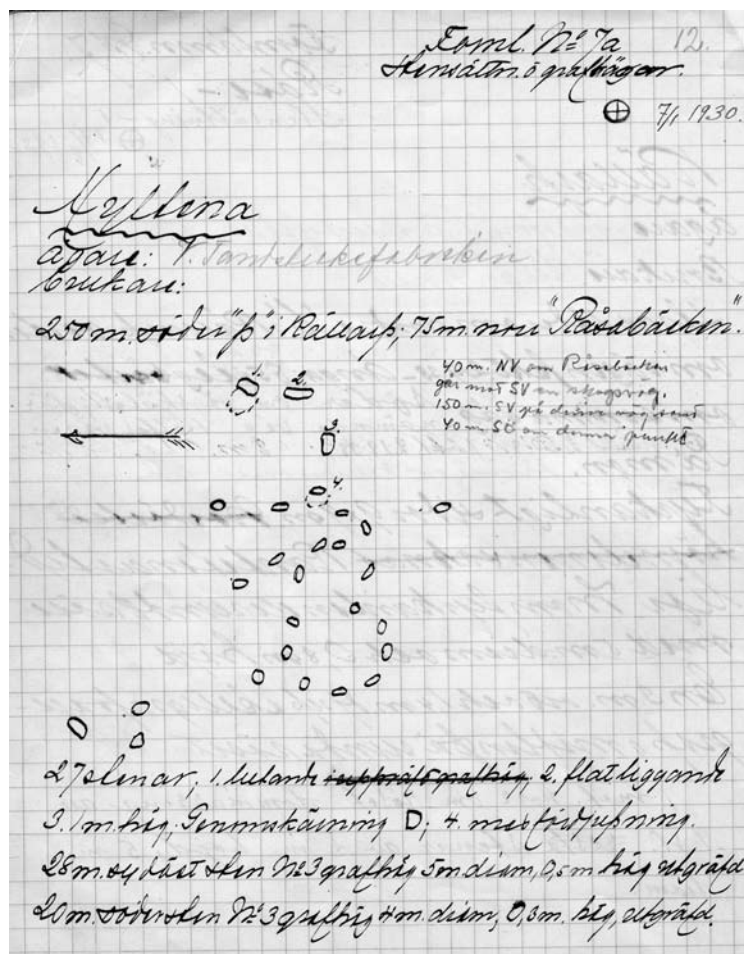 Forml. Nº 7a 12.
Stensättn. o grafhögar.
⊕ 7/1 1930.
Nyllena
ägare: V. Tändsticksfabriken
brukare:
250 m. söder "þ" i Källarp; 75 m. norr "Råsabäcken".
40 m. NV om Råsabäcken
går mot SV en skogsväg.
150 m. SV på denna väg samt
40 m. SO om denna punkt
1. 2.
3.
4.
27 stenar, 1. lutande 2. flatliggande
3. 1 m. hög, Genomskärning D; 4. med fördjupning.
28 m. sydväst sten Nº 3 grafhög 5 m diam, 0,5 m hög utgräfd
20 m. söder sten Nº 3 grafhög 4 m. diam, 0,3 m. hög, utgräfd.